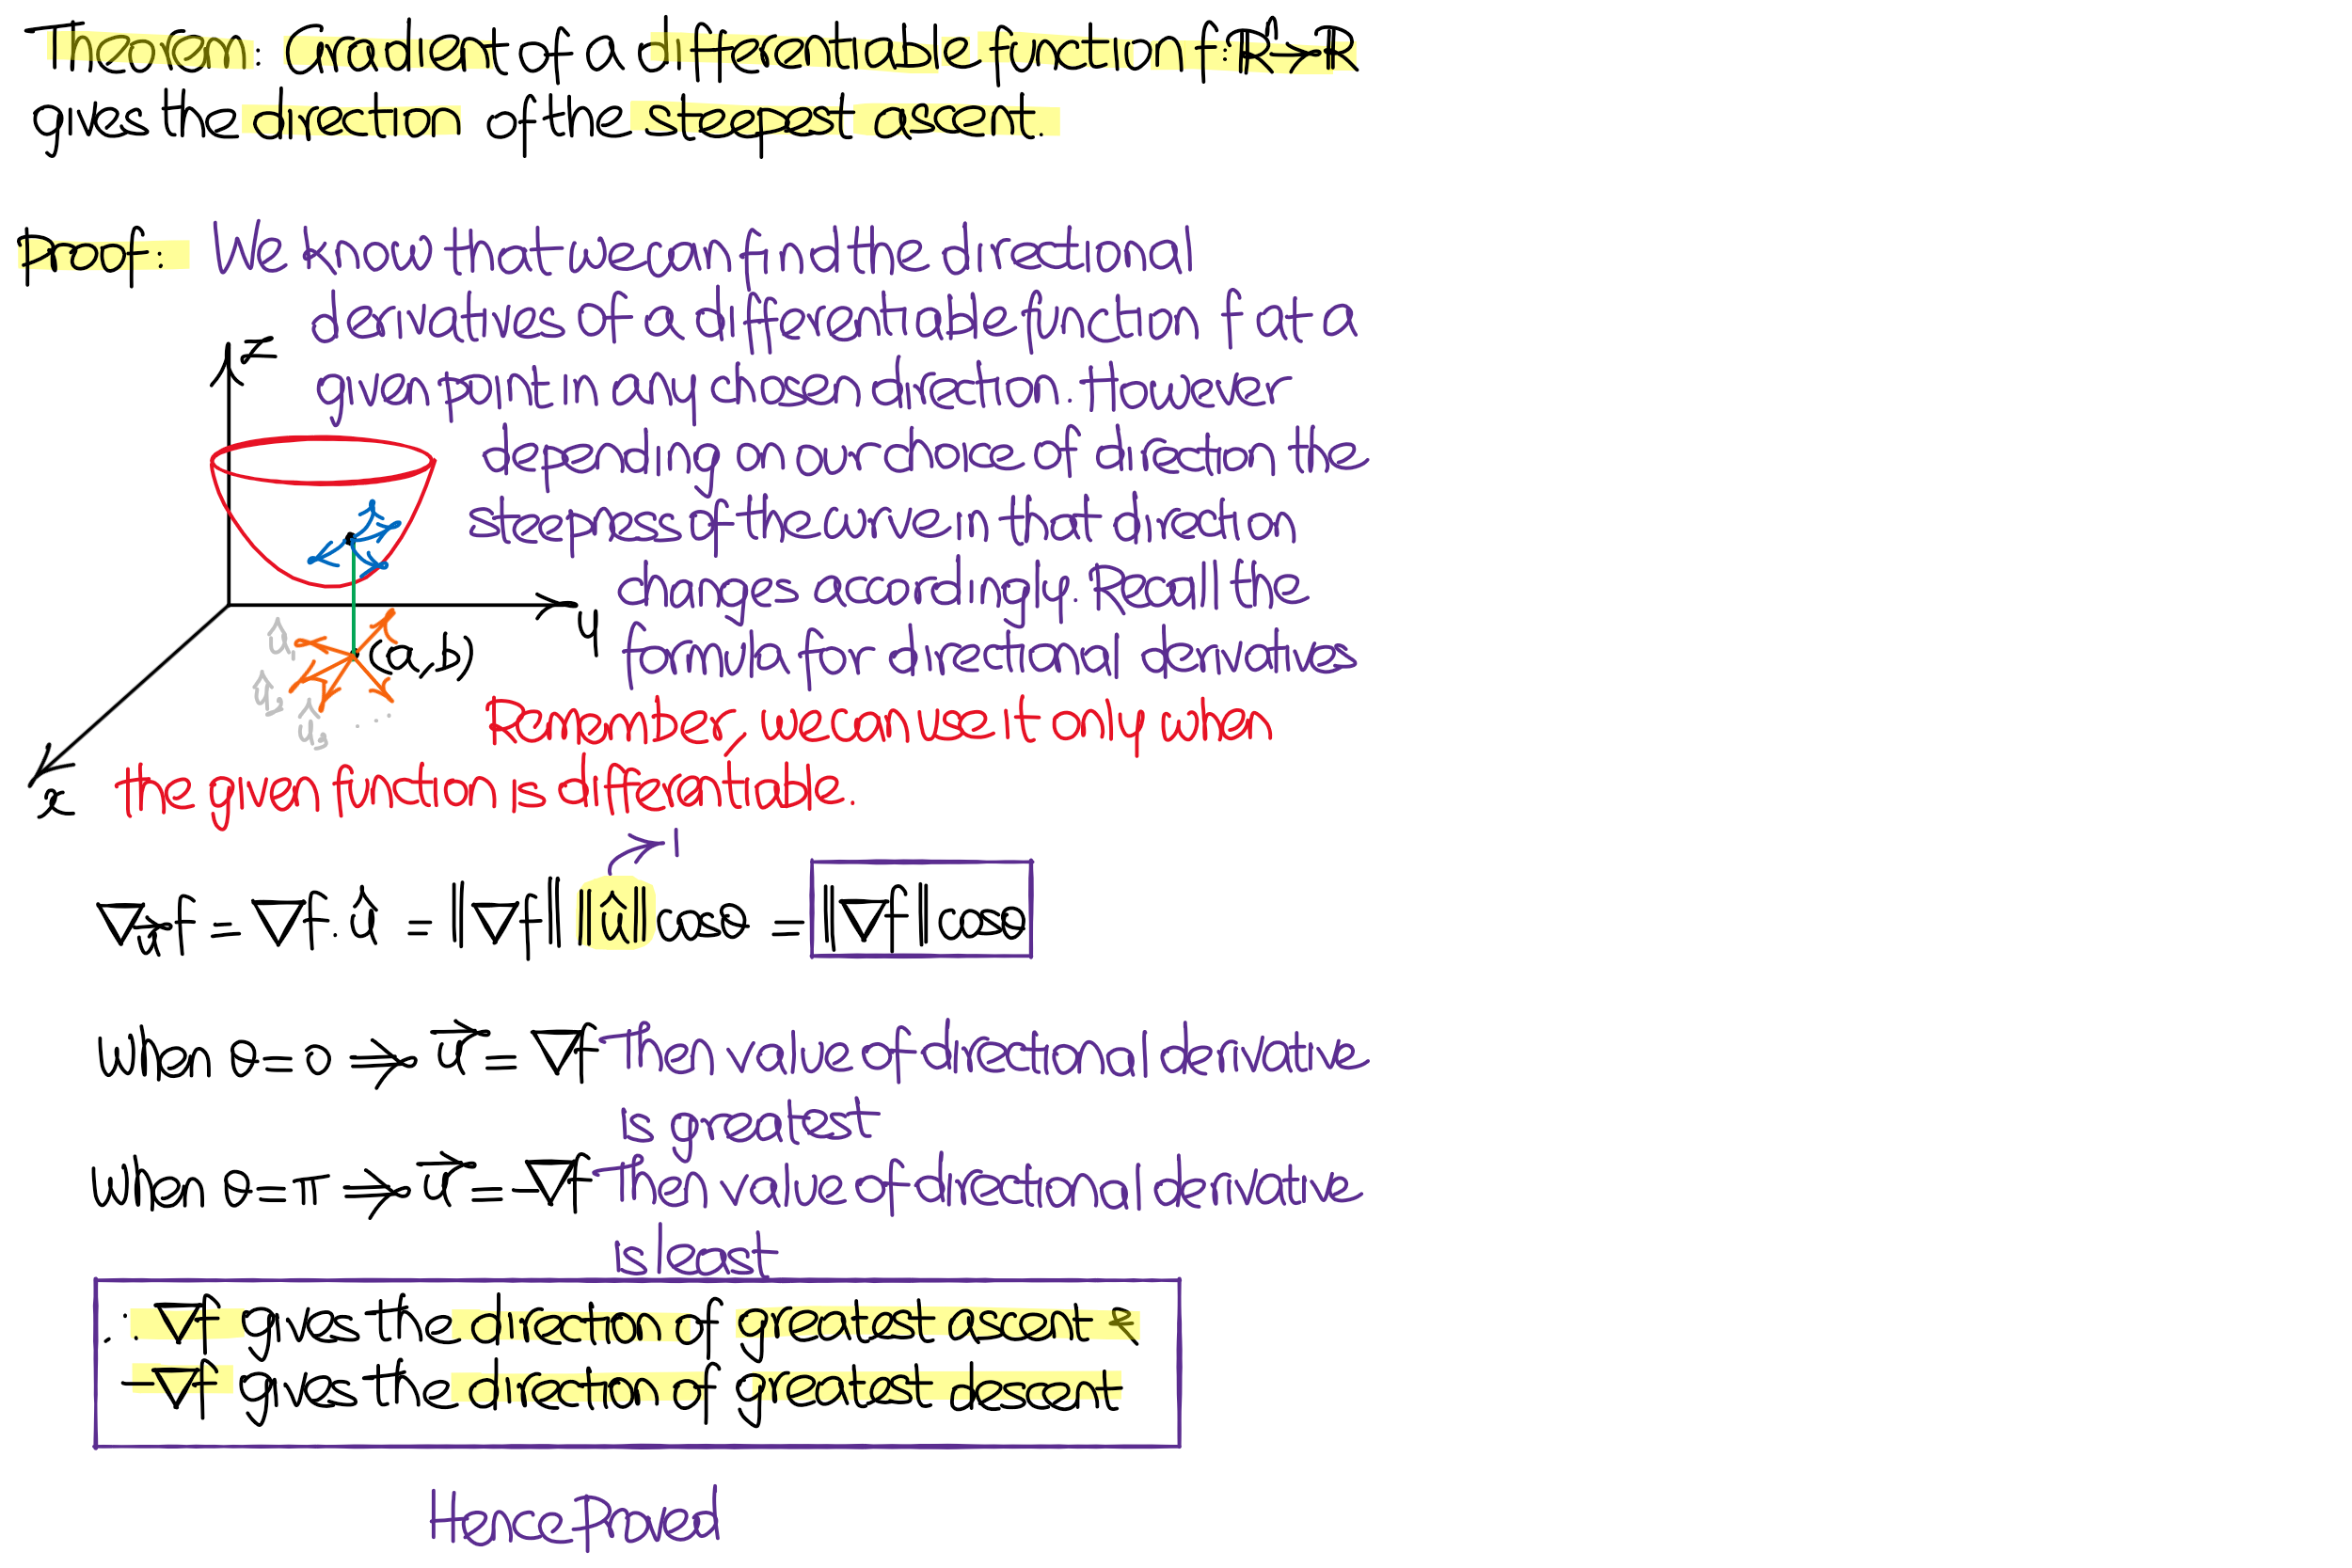 Theorem: Gradient of a differentiable function f: ℝⁿ→ℝ
gives the direction of the steepest ascent.
Proof: We know that we can find the directional
derivatives of a differentiable function f at a
given point in any chosen direction. However
depending on our choise of direction the
steepness of the curve in that direction
changes accordingly. Recall the
formula for directional derivatives
Remember, we can use it only when
the given function is differentiable.
z
y
x
(a,b)
û₁
û₂
û₃ ...
1
∇_u⃗ f = ∇f·û = ‖∇f‖‖û‖cosθ = ‖∇f‖cosθ
When θ=0 ⇒ u⃗ = ∇f The value of directional derivative
is greatest
When θ=π ⇒ u⃗ = -∇f The value of directional derivative
is least
∴ ∇f gives the direction of greatest ascent &
-∇f gives the direction of greatest descent
Hence Proved